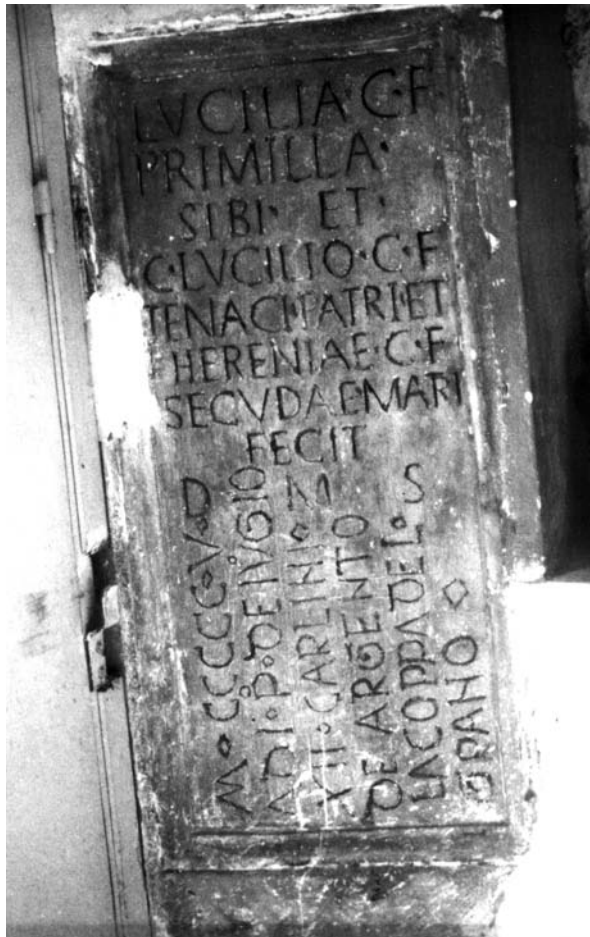 LVCILIA·C·F·
PRIMILLA·
SIBI· ET·
C·LVCILIO·C·F
TENACI·PATRI·ET
HERENIAE·C·F
SECVDAE·MARI
FECIT
D M S
M◇CCCCC·V·
ADI·P·DE IVGIO
XII·CARLINI◇
DE ARGENTO
LA COPPA DEL◇
GRANO ◇